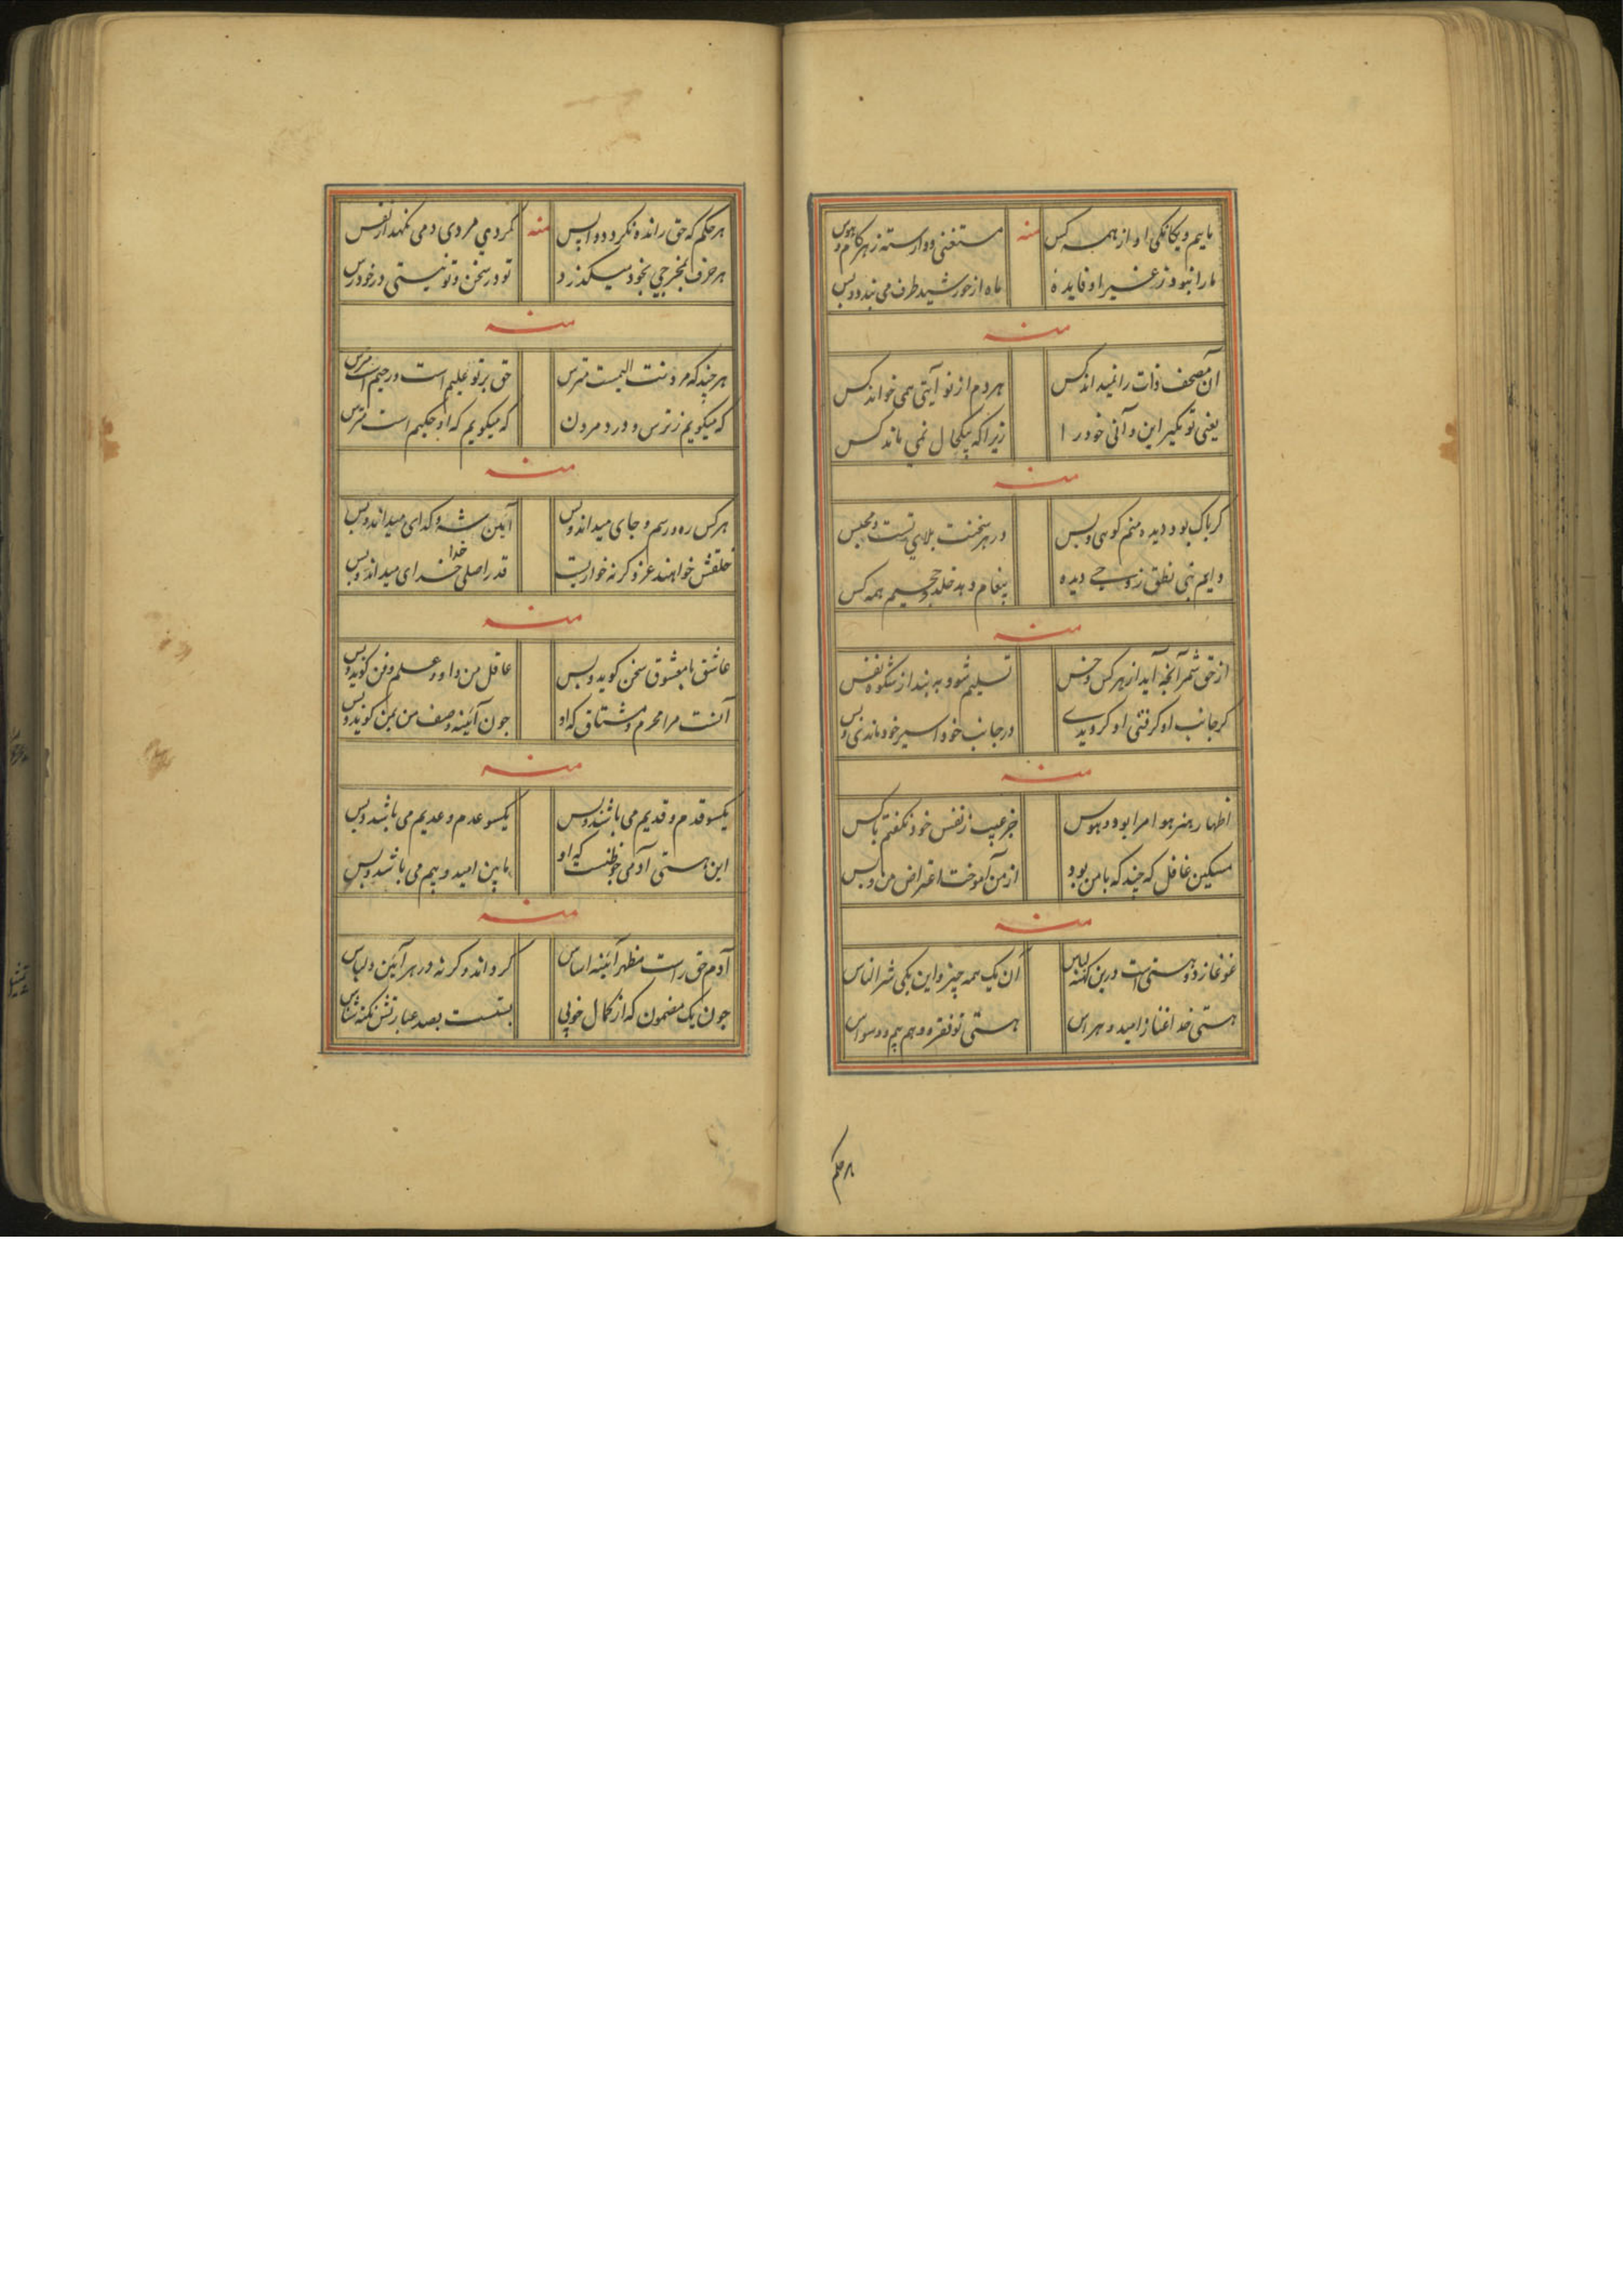 مایم و یکانکی او از همه کس منه مستغنی و وارسته ز هر کام و هوس
ما را نبود ز غیر او فایدهٔ ماه از خورشید طرف می بندد و بس
منه
آن مصحف ذات را نمیداند کس هر دم از نو آیتی همی خواند کس
یعنی تو مگیر این و آنی خود را زیرا که بیکحال نمی ماند کس
منه
کر باک بود دیده و منم کوهی و بس در هر سخنت بلای تست و مجلس
دایم نبی نطق ز وحی دیده پیغام دهد خلد و جحیم همه کس
منه
از حق شمر آنچه آید از هر کس و خس تسلیم شو و به بند از شکوه نفس
کر جانب او کرفتی او کرویدی در جانب خود اسیر خود ماندی و بس
منه
اظهار هنر هوا مرا بود و هوس جز عیب ز نفس خود نکفتم با کس
مسکین غافل که چند که با من بود از من آموخت اعتراض من و بس
منه
غوغا ز دو هستی است درین کهنه لباس آن یک همه چیز و این یکی شر الناس
هستی خدا غنا ز امید و هراس هستی تو فقر و وهم بیم و وسواس
هر حکم
هر حکم که حق رانده نکردد واپس منه کردی مردی دمی نکهدار نفس
هر حرف بمخرجی بخود میکذرد تو در سخن و تو نیستی در خود رس
منه
هر چند که مردنت الیمست مترس حق بر تو علیم است و رحیم است مترس
که میکویم ز ترس و درد مردن که میکویم که او حکیم است مترس
منه
هر کس ره و رسم و جای میداند و بس آیین شه و کدای میداند و بس
خلقش خواهند عز و کر نه خواریت قدر اصلی خدا خدای میداند و بس
منه
عاشق با معشوق سخن کوید و بس عاقل من و او و علم و فن کوید و بس
آنست مرا محرم و مشتاق که او جون آئینه وصف من بمن کوید و بس
منه
یکسو قدم و قدیم می باشد و بس یکسو عدم و عدیم می باشد و بس
این هستی آدمی خوظنیست که او ما بین امید و بیم می باشد و بس
منه
آدم حق راست مظهر آئینه اساس کرداند و کر نه در هر آیین و لباس
جون یک مضمون که از کمال خوبی بستست بصد عبارتش نکته شناس